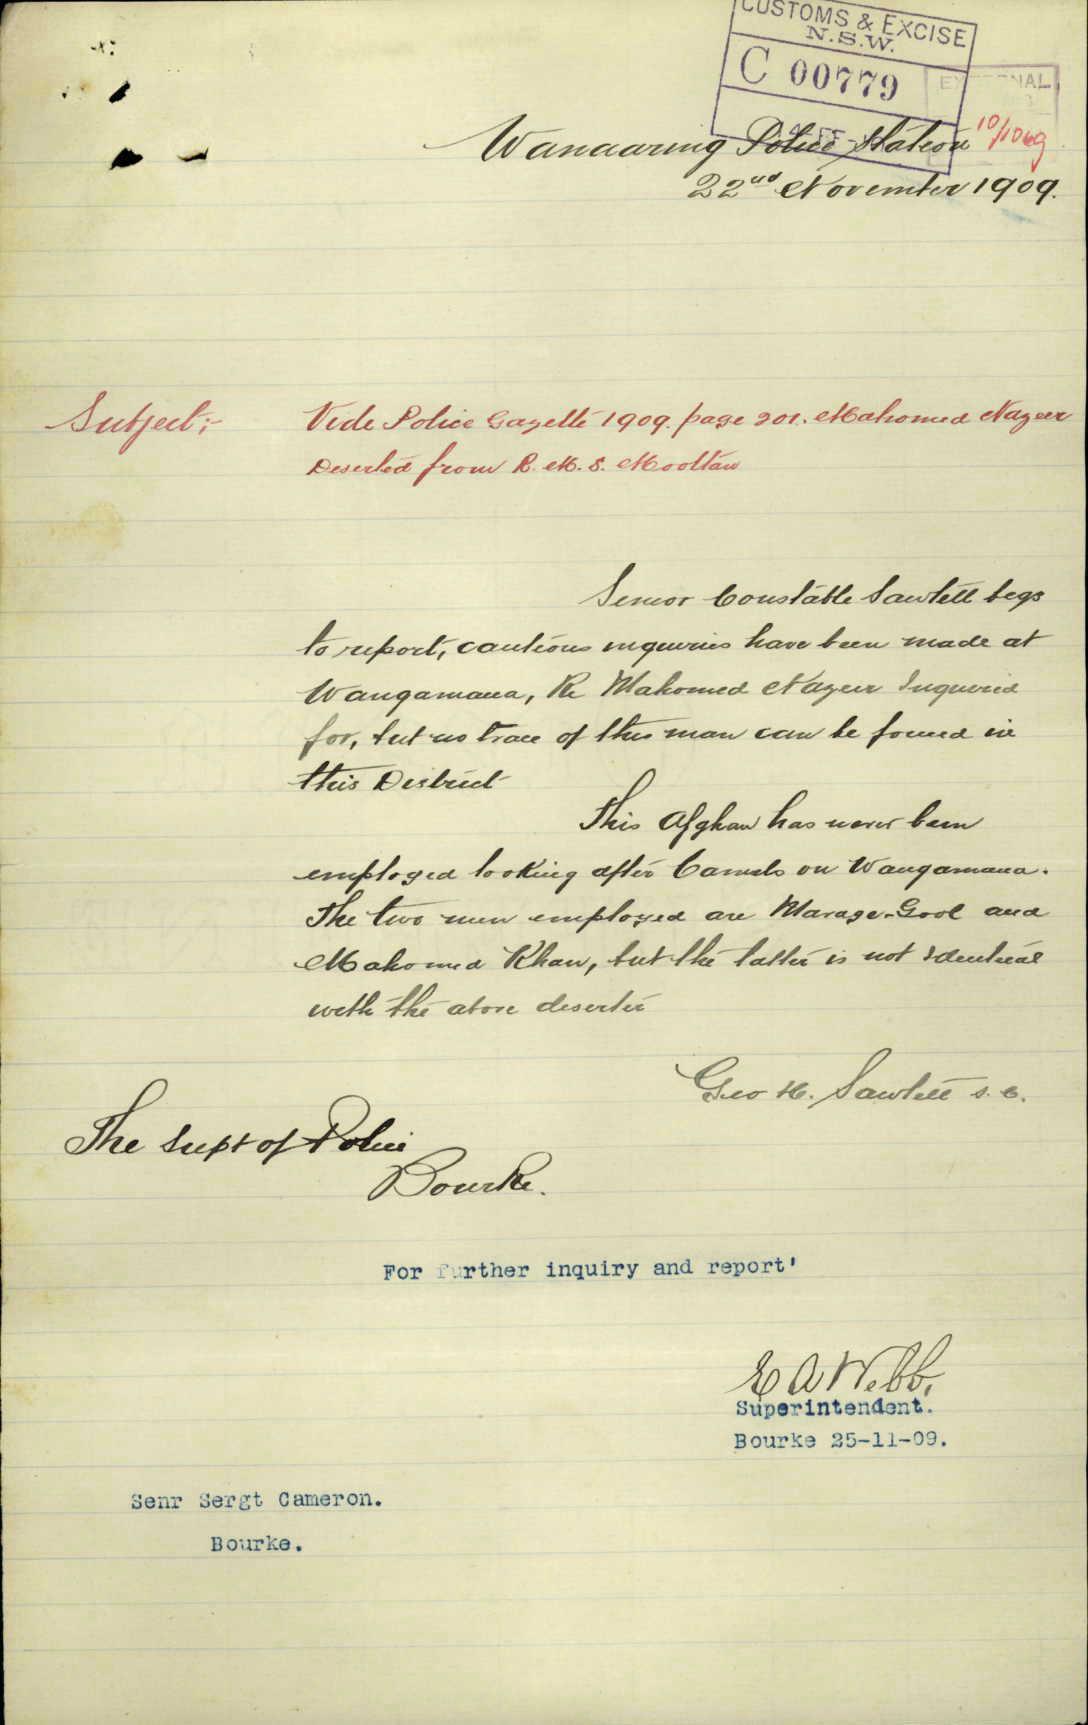 CUSTOMS & EXCISE
N.S.W.
C 00779
Wanaaring Police Station
22nd November 1909.
Subject:- Vide Police Gazette 1909. page 201. Mahomed Nazeer
Deserted from R. M. S. Mooltan
Senior Constable Sawtell begs
to report, cautious inquiries have been made at
Wangamana, Re Mahomed Nazeer Inquired
for, but no trace of this man can be found in
this District
This Afghan has never been
employed looking after Camels on Wangamana.
The two men employed are Marage-Gool and
Mahomed Khan, but the latter is not Identical
with the above deserter
Geo H. Sawtell S. C.
The Supt of Police
Bourke.
For further inquiry and report'
E A Webb.
Superintendent.
Bourke 25-11-09.
Senr Sergt Cameron.
Bourke.